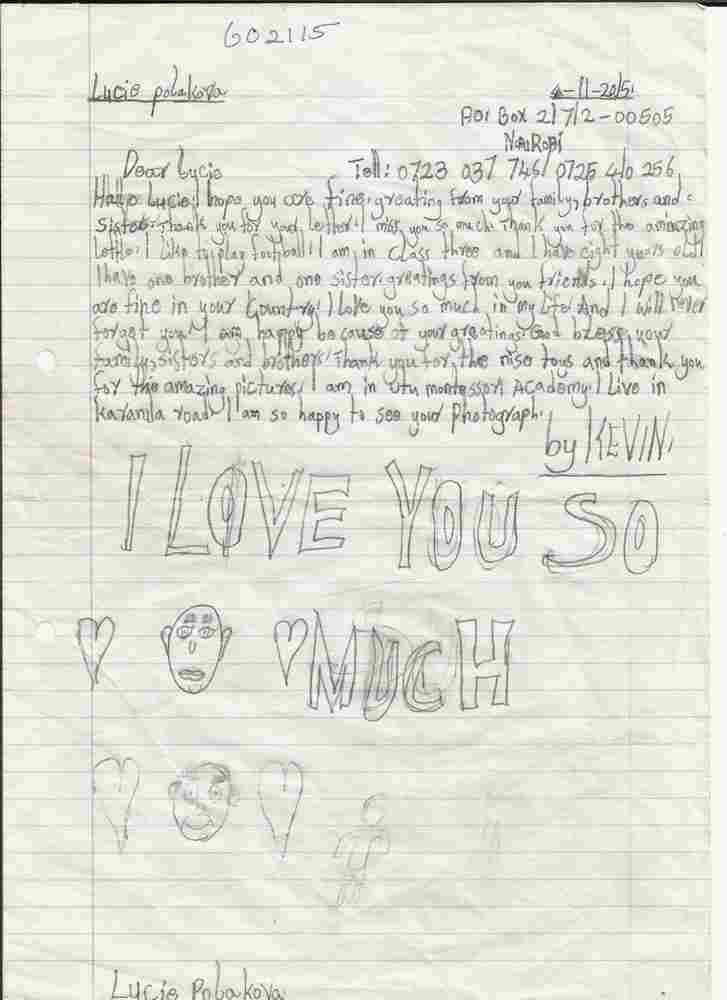 602115
Lucie polakova
4-11-2015
P.O. Box 21712-00505
NAIROBI
Dear Lucie
Tell: 0723 037 746/ 0725 410 256
Hallo Lucie I hope you are fine. greating from your family, brothers and
Sister. Thank you for your letter. I miss you so much. Thank you for the amazing
Letter. I like to play football. I am in class three and I have eight years old.
I have one brother and one sister. greatings from you friends. I hope you
are fine in your Country. I Love you so much in my Life. And I will never
forget you. I am happy because of your greatings. God bless your
family, sisters and brothers. Thank you for the nise toys and thank you
for the amazing pictures. I am in Utu montessori Academy. I Live in
Karanda road. I am so happy to see your Photograph.
by KEVIN.
I LOVE YOU SO
MUCH
Lucie Polakova